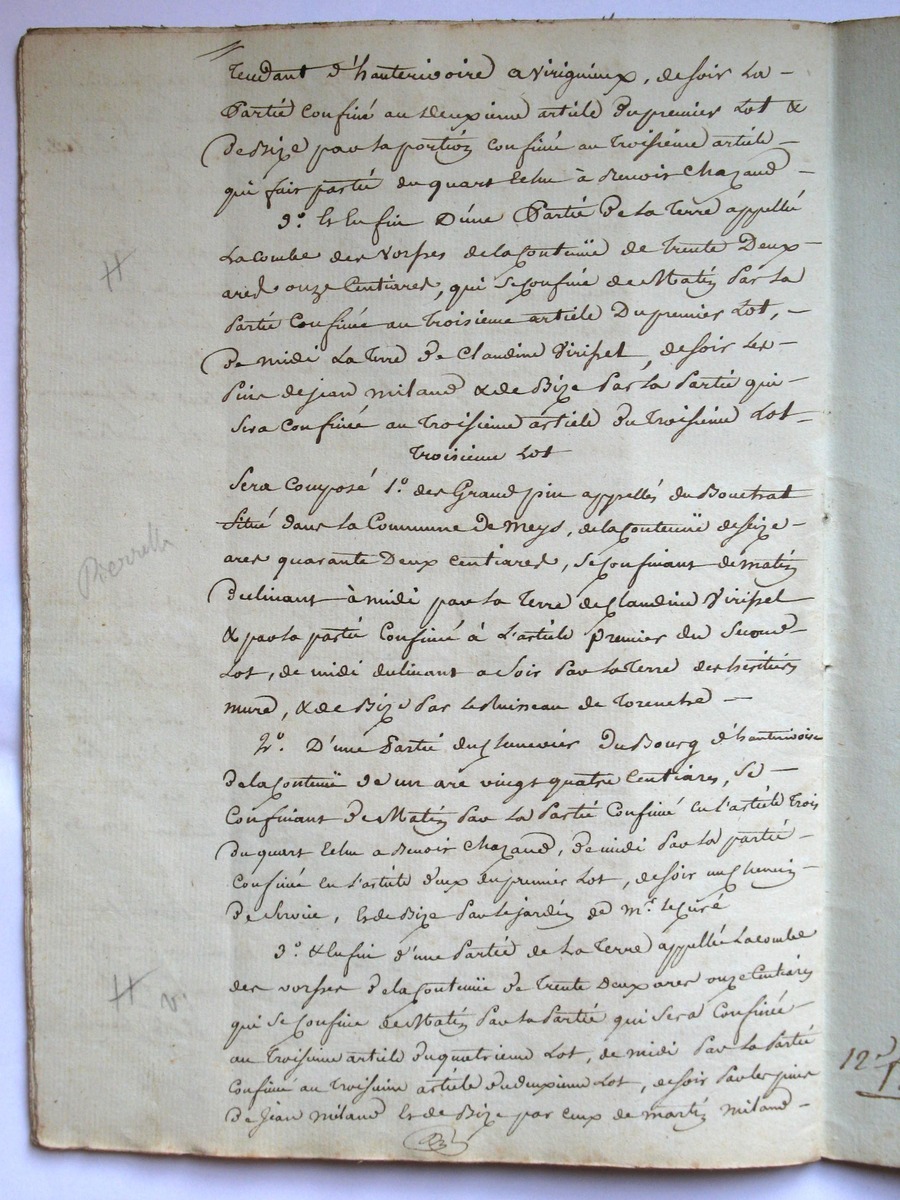 tendant d'hauterivoire a Virigneux, de soir La
Partié Confiné au deuxieme article du premier Lot &
de Bize par la portion confinée au troisiéme article
qui fait partié du quart Echu à Benoit Chazaud
3.° Et Enfin D'une Partié De La Terre appellé
La combe des Vorses de la Contenuë de trente Deux
ares onze Centiares, qui se Confine de Matin Par La
Partié Confinée au troisieme article Du premier Lot,
de midi La Terre de Claudine Virissel, de soir Les
Pins de jean milaud & de Bize Par La Partié qui
Sera Confinée au troisieme article du troisieme Lot
troisieme Lot
Sera Composé 1.° des Grand pin appellés du Bouchat
Situé dans la Commune de Meys, de la Contenuë de seize
ares quarante Deux centiares, se Confinant de matin
declinant à midi par la Terre de Claudine Virissel
& par la partié Confiné à L'article premier du Second
Lot, de midi declinant a soir Par la Terre des héritiers
mure, & de Bize Par le Ruisseau de Torenche
2.° D'une Partié du Chenevier du Bourg d'hauterivoire
de la Contenuë de un are vingt quatre Centiares, Se
Confinant de Matin Par La Partié Confiné en l'article trois
du quart Echu a Benoit Chazaud, de midi Par la partié
Confinée en l'article deux du premier Lot, de soir un Chemin
de Service, Et de Bize Par le jardin de mr. le Curé
3.° & Enfin d'une Partié de La Terre appellée Lacombe
des vorses de la Contenuë de Trente Deux ares onze Centiares
qui se Confine de Matin Par la Partié qui Sera Confinée
au troisieme article du quatrieme Lot, de midi Par la Partié
Confiné au troisieme article du deuxieme Lot, de soir Par les pins
de Jean milaud Et de Bize par ceux de martin milaud
Pierrell
H
H
v.
12